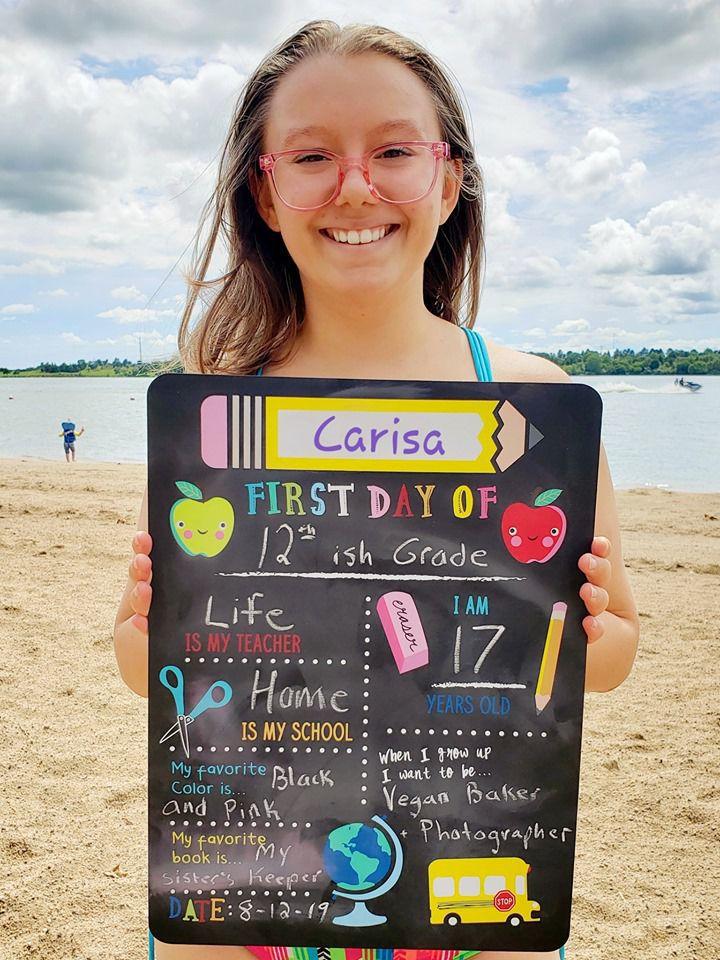 Carisa
FIRST DAY OF
12th ish Grade
Life
IS MY TEACHER
eraser
I AM
17
YEARS OLD
Home
IS MY SCHOOL
My favorite
Color is... Black
and Pink
When I grow up
I want to be...
Vegan Baker
+ Photographer
My favorite
book is... My
sister's Keeper
DATE: 8-12-19
STOP